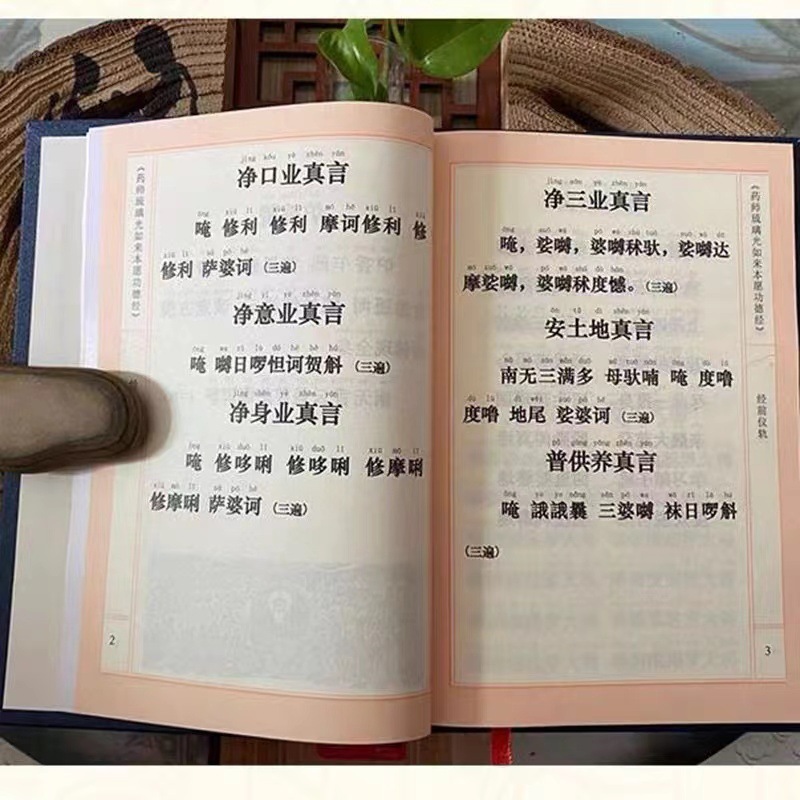 《药师琉璃光如来本愿功德经》
jìng kǒu yè zhēn yán
净口业真言
ōng xiū lì xiū lì mó hē xiū lì xiū
唵 修利 修利 摩诃修利 修
xiū lì sà pó hē
修利 萨婆诃（三遍）
jìng yì yè zhēn yán
净意业真言
唵 嚩日啰怛诃贺斛（三遍）
jìng shēn yè zhēn yán
净身业真言
ōng xiū duō lì xiū duō lì xiū mó lì
唵 修哆唎 修哆唎 修摩唎
xiū mó lì sà pó hē
修摩唎 萨婆诃（三遍）
2
jìng sān yè zhēn yán
净三业真言
唵，娑嚩，婆嚩秫驮，娑嚩达
摩娑嚩，婆嚩秫度憾。（三遍）
ān tǔ dì zhēn yán
安土地真言
南无三满多 母驮喃 唵 度噜
度噜 地尾 娑婆诃（三遍）
pǔ gòng yǎng zhēn yán
普供养真言
唵 誐誐曩 三婆嚩 袜日啰斛
（三遍）
《药师琉璃光如来本愿功德经》
经前仪轨
3